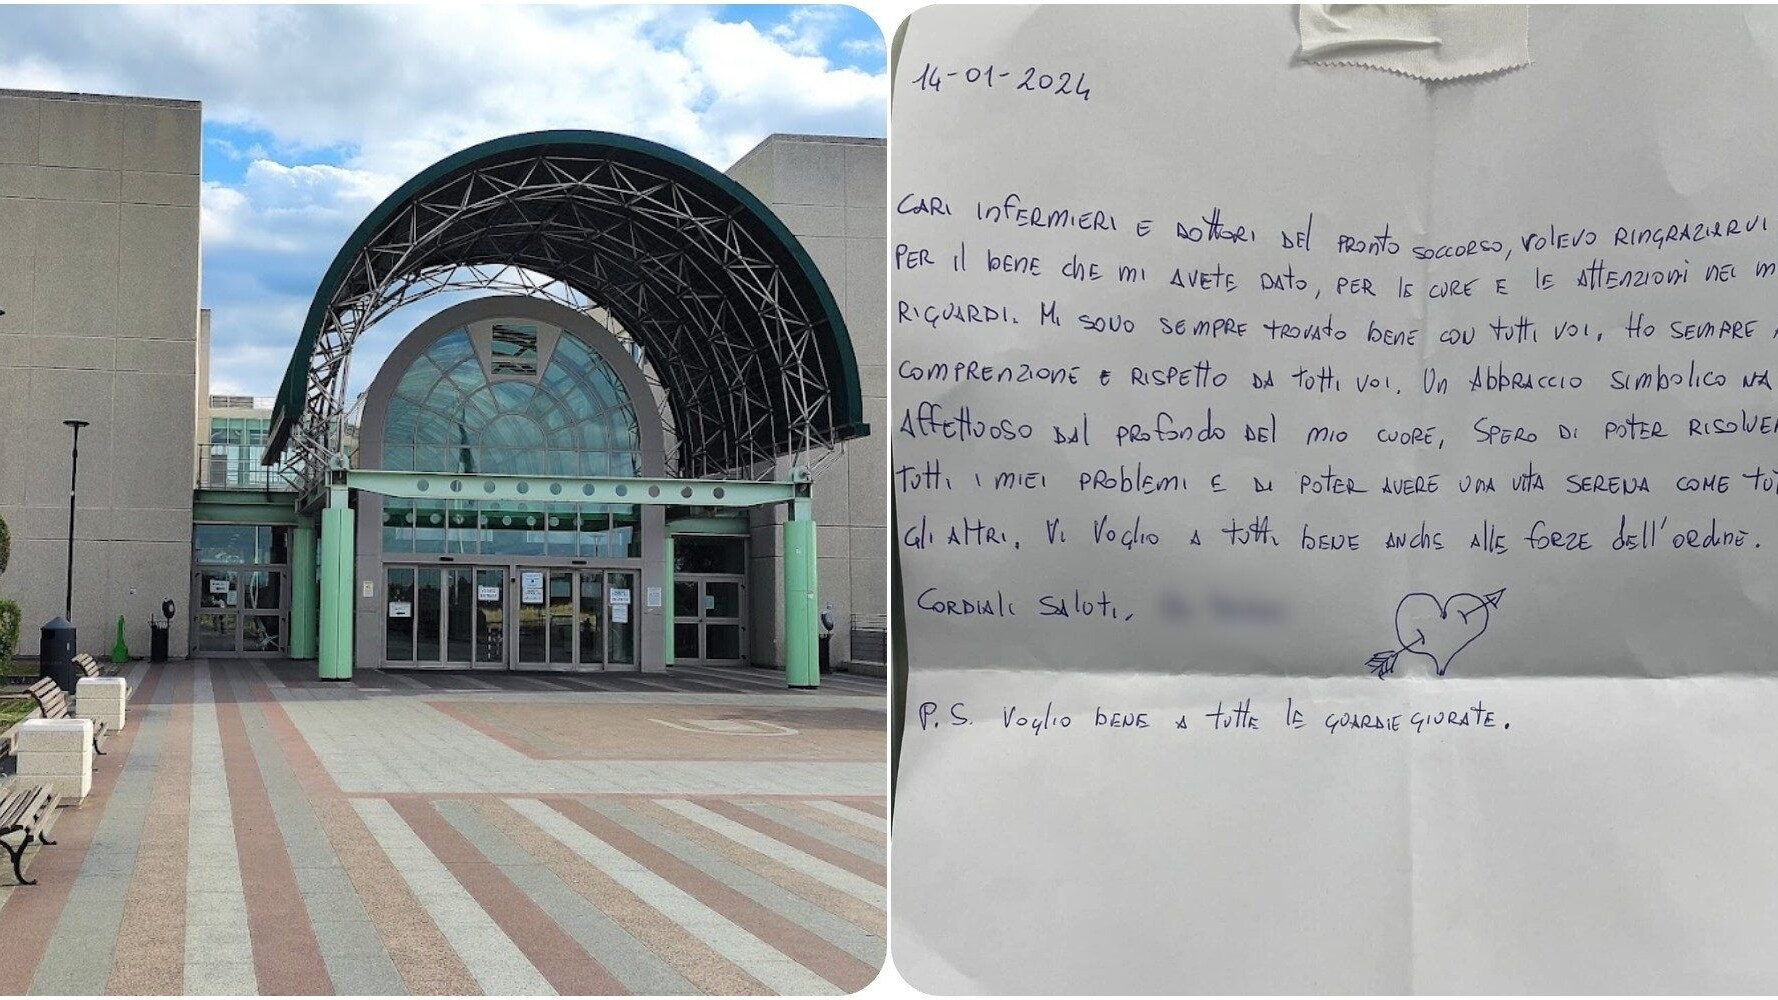 14-01-2024
CARI INFERMIERI E DOTTORI DEL PRONTO SOCCORSO, VOLEVO RINGRAZIARVI
PER IL BENE CHE MI AVETE DATO, PER LE CURE E LE ATTENZIONI NEI M
RIGUARDI. MI SONO SEMPRE TROVATO BENE CON TUTTI VOI. HO SEMPRE
COMPRENZIONE E RISPETTO DA TUTTI VOI. UN ABBRACCIO SIMBOLICO MA
AFFETTUOSO DAL PROFONDO DEL MIO CUORE, SPERO DI POTER RISOLVE
TUTTI I MIEI PROBLEMI E DI POTER AVERE UNA VITA SERENA COME TUT
GLI ALTRI. VI VOGLIO A TUTTI BENE ANCHE ALLE FORZE DELL'ORDINE.
CORDIALI SALUTI,
P.S. VOGLIO BENE A TUTTE LE GUARDIE GIURATE.